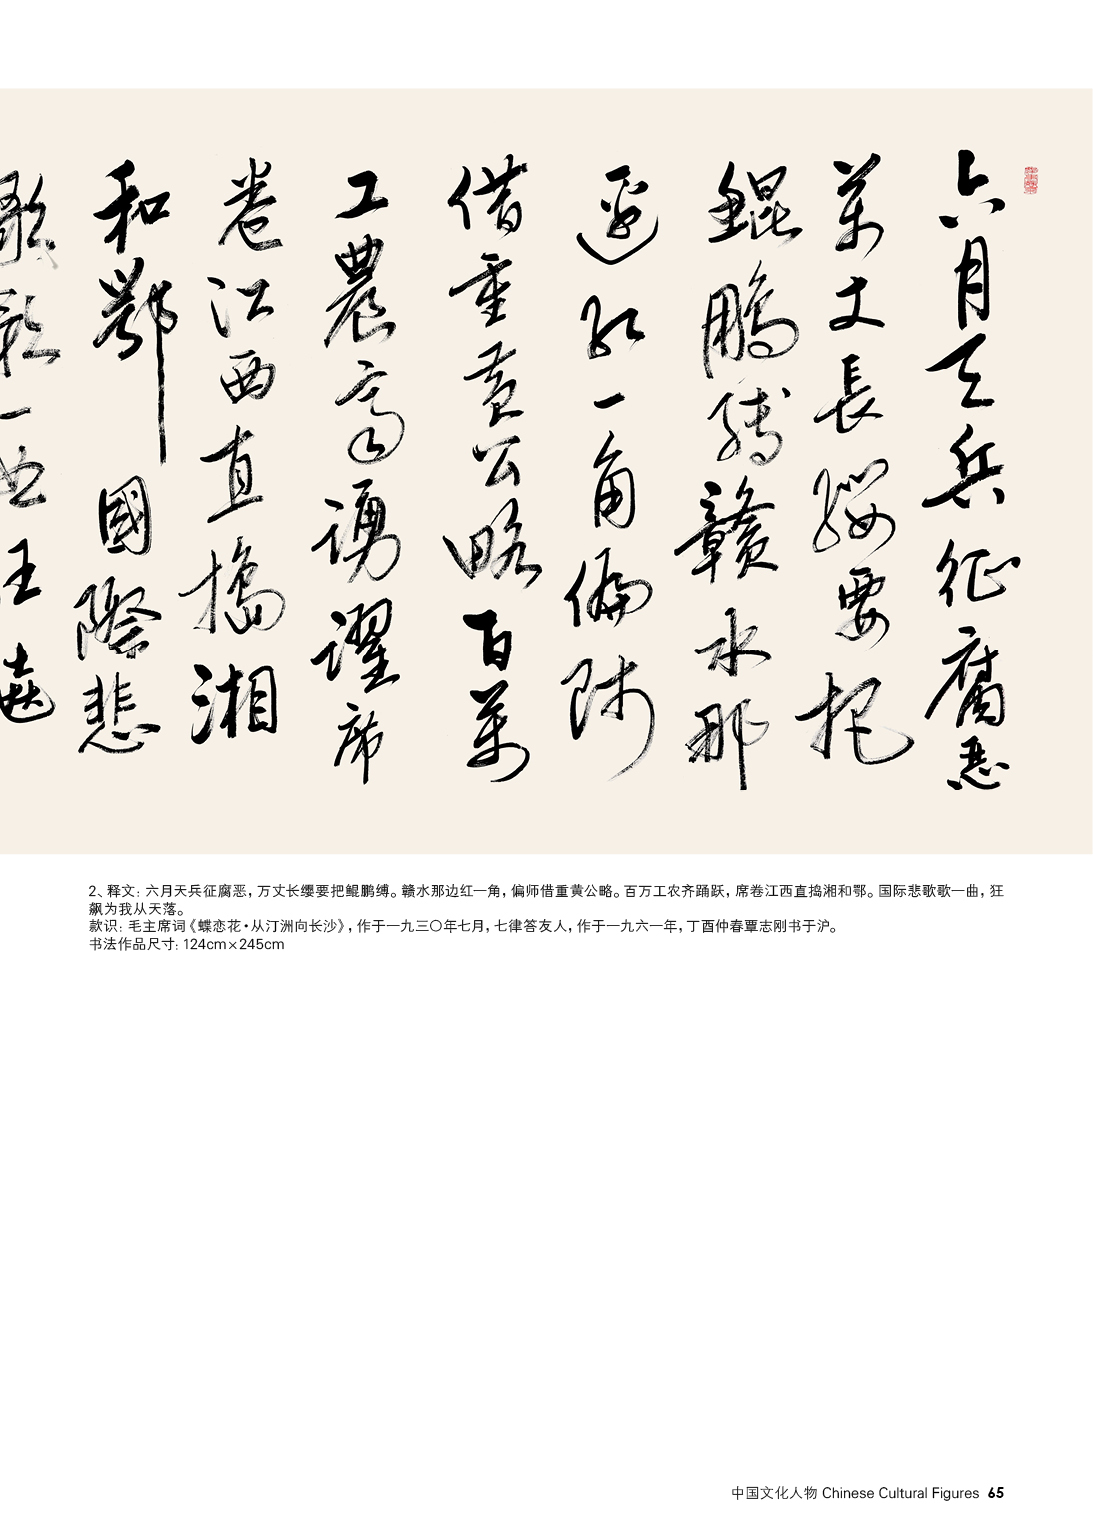 六月天兵征腐惡
萬丈長纓要把
鯤鵬縛贛水那
邊紅一角偏師
借重黃公略百萬
工農齊踴躍席
卷江西直搗湘
和鄂國際悲
歌歌一曲狂飆
2、释文：六月天兵征腐恶，万丈长缨要把鲲鹏缚。赣水那边红一角，偏师借重黄公略。百万工农齐踊跃，席卷江西直捣湘和鄂。国际悲歌歌一曲，狂
飙为我从天落。
款识：毛主席词《蝶恋花·从汀洲向长沙》，作于一九三〇年七月，七律答友人，作于一九六一年，丁酉仲春覃志刚书于沪。
书法作品尺寸：124cm×245cm
中国文化人物 Chinese Cultural Figures 65